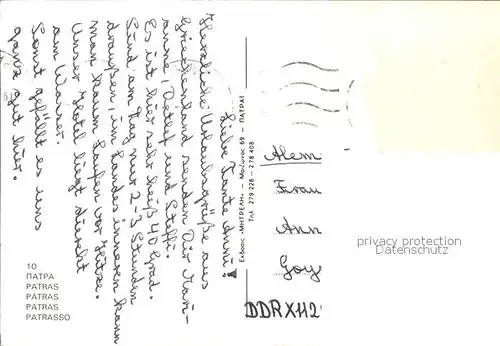 Liebe Tante Anni!
Herzliche Urlaubsgrüße aus
Griechenland senden Dir Mari-
anne, Detlef und Steffi.
Es ist hier sehr heiß 40 Grad.
Sind am Tag nur 2-3 Stunden
draußen, im Landesinneren kann
man kaum Laufen vor Hitze.
Unser Hotel liegt direkt
am Wasser.
Sonst gefällt es uns
ganz gut hier.
10
ΠΑΤΡΑ
PATRAS
PATRAS
PATRAS
PATRASSO
Εκδοσις «ΜΗΤΡΕΛΗ» - Μαιζώνος 69 - ΠΑΤΡΑΙ
Τηλ. 279 228 - 278 408
Alem
Frau
Ann
Goy
DDR X112
privacy protection
Datenschutz